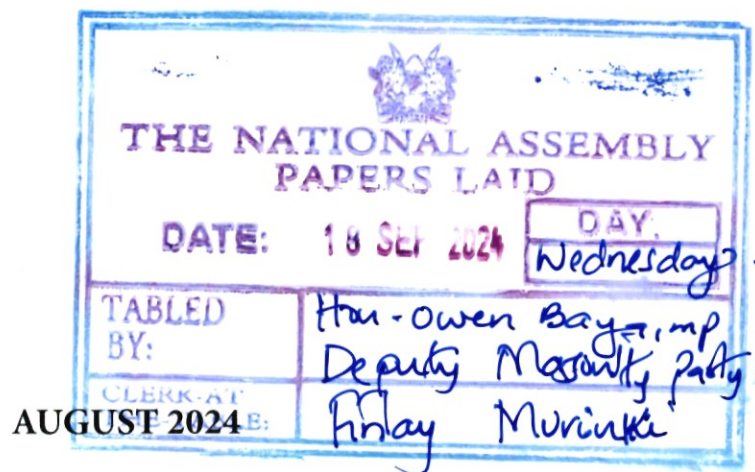 THE NATIONAL ASSEMBLY
PAPERS LAID
DATE: 18 SEP 2024
DAY:
Wednesday
TABLED BY:
Hon. Owen Baya, MP
Deputy Majority Party
CLERK-AT
Finlay Muriuki
AUGUST 2024